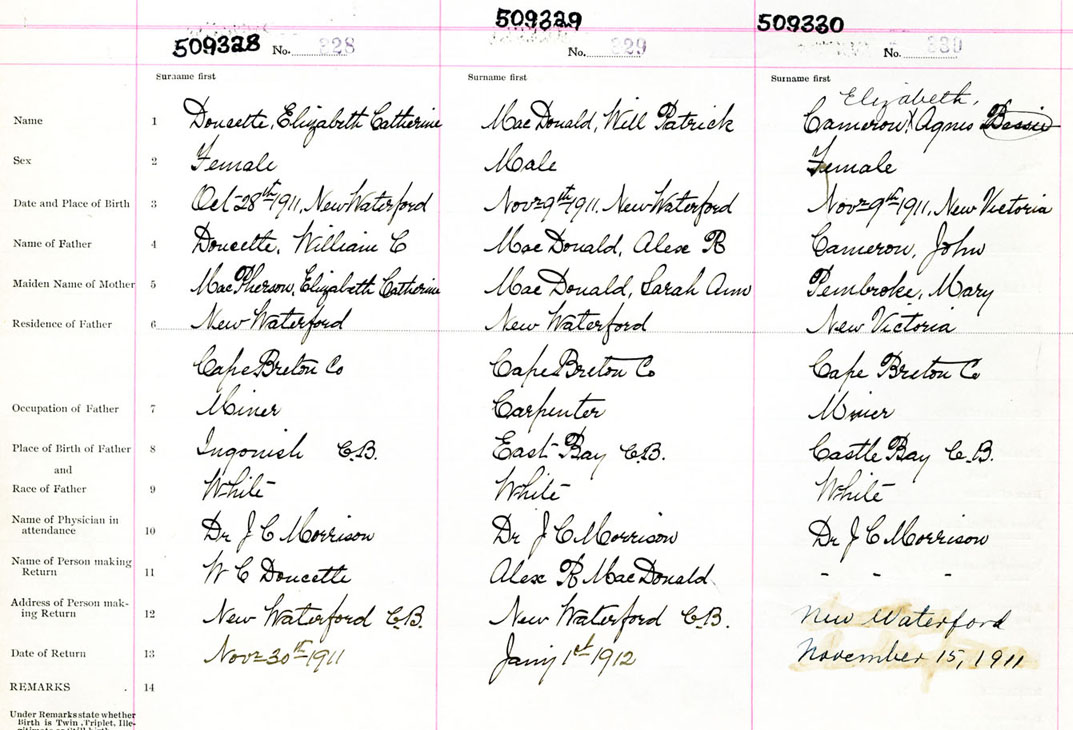 509328 No. 328 509329 No. 329 509330 No. 330
Surname first Surname first Surname first
Elizabeth,
Name 1 Doucette, Elizabeth Catherine MacDonald, Will Patrick Cameron, Agnes Bessie
Sex 2 Female Male Female
Date and Place of Birth 3 Oct 28th 1911, New Waterford Novr 9th 1911, New Waterford Novr 9th 1911, New Victoria
Name of Father 4 Doucette, William C MacDonald, Alex R Cameron, John
Maiden Name of Mother 5 MacPherson, Elizabeth Catherine MacDonald, Sarah Ann Pembroke, Mary
Residence of Father 6 New Waterford New Waterford New Victoria
Cape Breton Co Cape Breton Co Cape Breton Co
Occupation of Father 7 Miner Carpenter Miner
Place of Birth of Father 8 Ingonish C.B. East Bay C.B. Castle Bay C.B.
and
Race of Father 9 White White White
Name of Physician in
attendance 10 Dr J C Morrison Dr J C Morrison Dr J C Morrison
Name of Person making
Return 11 W C Doucette Alex R MacDonald - - -
Address of Person mak-
ing Return 12 New Waterford C.B. New Waterford C.B. New Waterford
Date of Return 13 Novr 30th 1911 Jany 1st 1912 November 15, 1911
REMARKS . 14
Under Remarks state whether
Birth is Twin, Triplet, Ille-
gitimate or Still birth